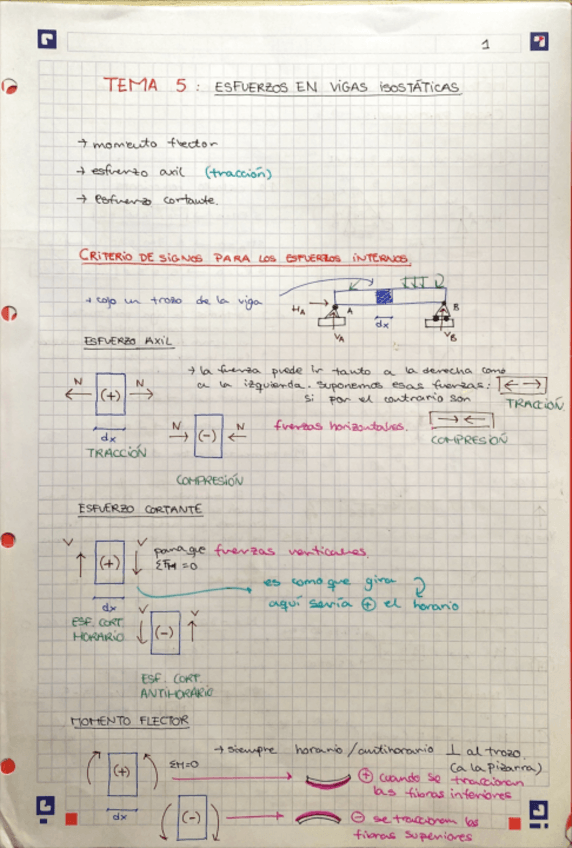 1
TEMA 5 : ESFUERZOS EN VIGAS ISOSTÁTICAS
→ momento flector
→ esfuerzo axil (tracción)
→ esfuerzo cortante.
CRITERIO DE SIGNOS PARA LOS ESFUERZOS INTERNOS
→ cojo un trozo de la viga
HA A B
dx
VA VB
ESFUERZO AXIL
→ la fuerza puede ir tanto a la derecha como
a la izquierda. Suponemos esas fuerzas: ← →
si por el contrario son
TRACCIÓN
N (+) N
dx
TRACCIÓN
N (-) N
fuerzas horizontales.
→ ←
COMPRESIÓN
COMPRESIÓN
ESFUERZO CORTANTE
V (+) V
para que fuerzas verticales.
=0
dx
es como que gira
aquí sería ⊕ el horario
ESF. CORT.
HORARIO
V (-) V
ESF. CORT.
ANTIHORARIO
MOMENTO FLECTOR
→ siempre horario/antihorario ⊥ al trozo.
(a la pizarra)
(+) ΣM=0
dx
⊕ cuando se traccionan
las fibras inferiores
(-)
⊖ se traccionan las
fibras superiores